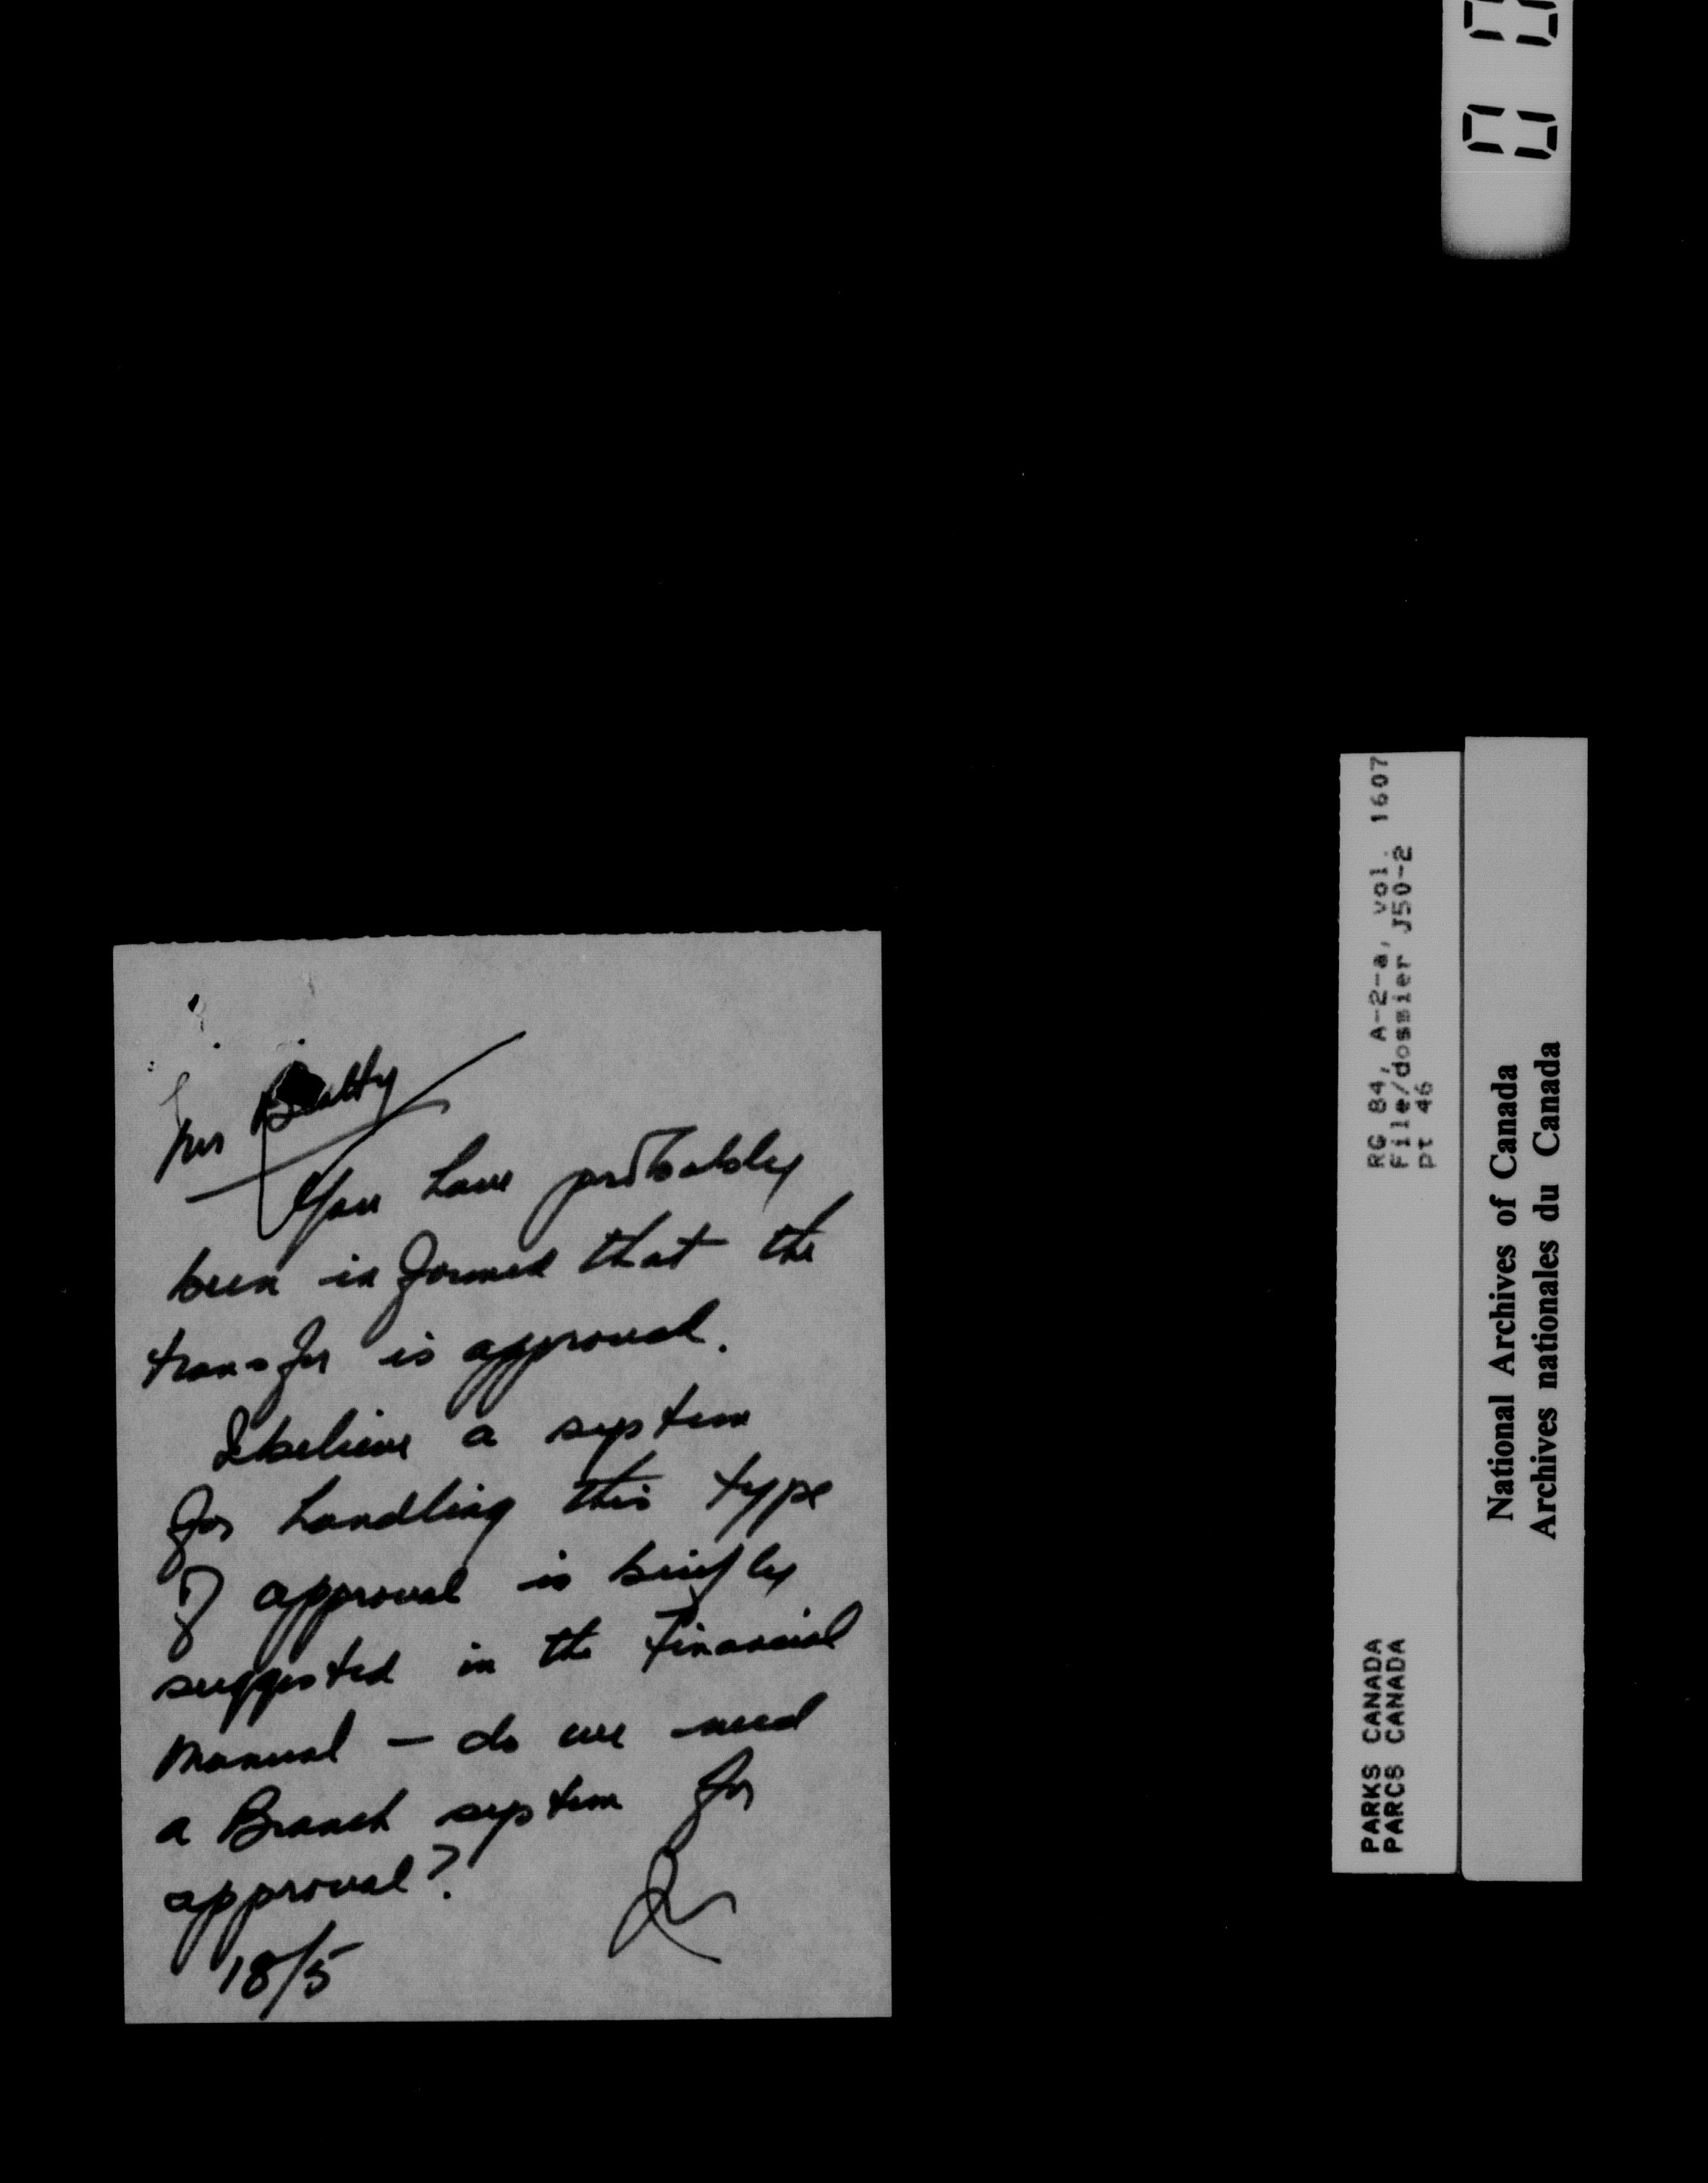 Mr Beatty
You have probably
been informed that the
transfer is approved.
I believe a system
for handling this type
of approval is briefly
suggested in the Financial
Manual — do we need
a Branch system for
approval?
18/5
RG 84, A-2-a, vol. 1607
File/dossier J50-2
pt 46
PARKS CANADA
PARCS CANADA
National Archives of Canada
Archives nationales du Canada